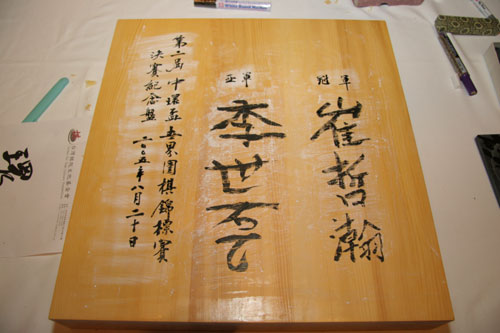 冠軍
崔哲瀚
亞軍
李世乭
第二屆「中環盃」世界圍棋錦標賽
決賽紀念盤 二〇〇五年八月二十日
White Board Marker